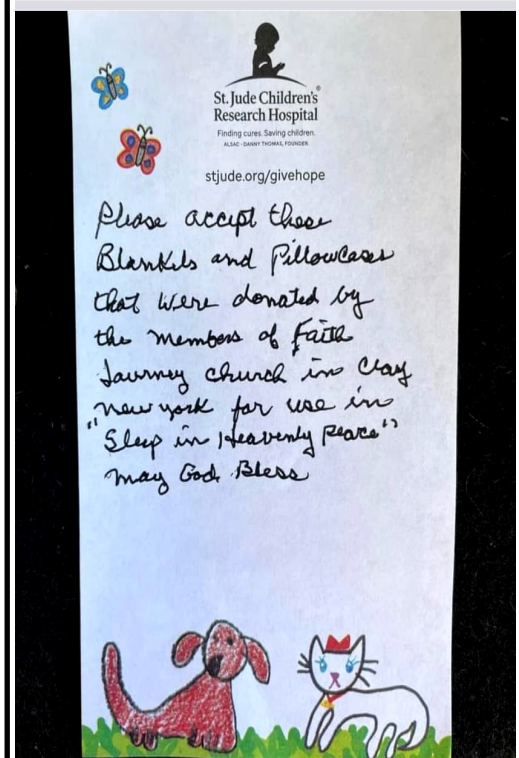 St. Jude Children's
Research Hospital
Finding cures. Saving children.
ALSAC · DANNY THOMAS, FOUNDER
stjude.org/givehope
Please accept these
Blankets and Pillowcases
that were donated by
the members of Faith
Journey church in Clay
New york for use in
"Sleep in Heavenly Peace"
May God Bless